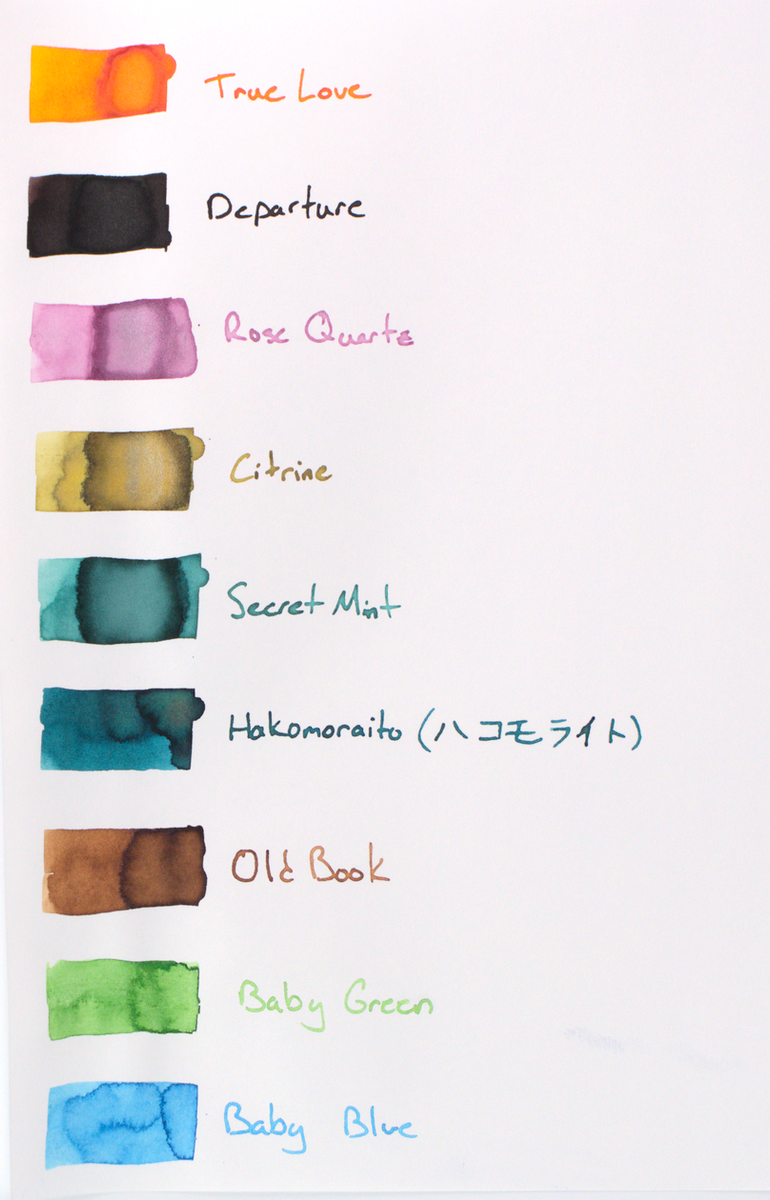 True Love
Departure
Rose Quartz
Citrine
Secret Mint
Hakomoraito (ハコモライト)
Old Book
Baby Green
Baby Blue